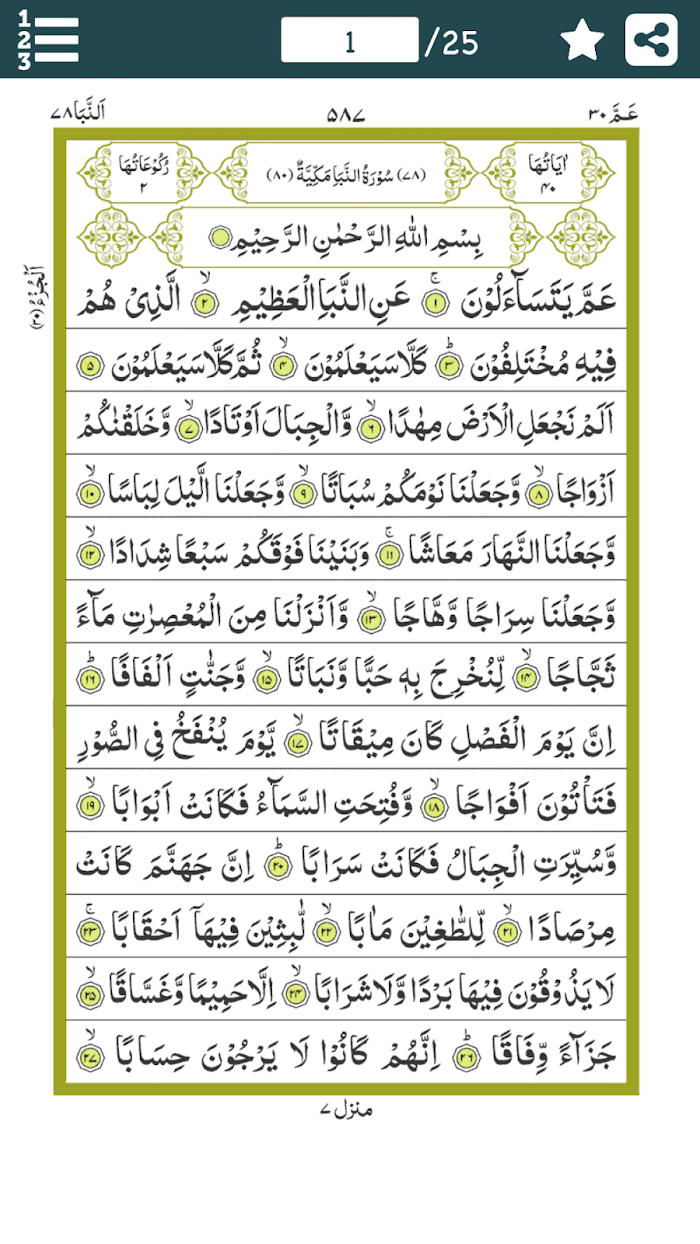 1
2
3
1
/25
اَلنَّبَا٧٨
٥٨٧
عَمَّ ٣٠
اٰيَاتُهَا ٤٠
(٧٨) سُوْرَةُ النَّبَاِ مَكِّيَّةٌ (٨٠)
رُكُوْعَاتُهَا ٢
بِسْمِ اللهِ الرَّحْمٰنِ الرَّحِيْمِ
اَلْجُزْءُ (٣٠)
عَمَّ يَتَسَآءَلُوْنَ ۚ‏ ١ عَنِ النَّبَاِ الْعَظِيْمِ ۙ‏ ٢ الَّذِىْ هُمْ
فِيْهِ مُخْتَلِفُوْنَ ؕ‏ ٣ كَلَّا سَيَعْلَمُوْنَ ۙ‏ ٤ ثُمَّ كَلَّا سَيَعْلَمُوْنَ ٥
اَلَمْ نَجْعَلِ الْاَرْضَ مِهٰدًا ۙ‏ ٦ وَّالْجِبَالَ اَوْتَادًا ۙ‏ ٧ وَّخَلَقْنٰكُمْ
اَزْوَاجًا ۙ‏ ٨ وَّجَعَلْنَا نَوْمَكُمْ سُبَاتًا ۙ‏ ٩ وَّجَعَلْنَا الَّيْلَ لِبَاسًا ۙ‏ ١٠
وَّجَعَلْنَا النَّهَارَ مَعَاشًا ۚ‏ ١١ وَبَنَيْنَا فَوْقَكُمْ سَبْعًا شِدَادًا ۙ‏ ١٢
وَّجَعَلْنَا سِرَاجًا وَّهَّاجًا ۙ‏ ١٣ وَّاَنْزَلْنَا مِنَ الْمُعْصِرٰتِ مَآءً
ثَجَّاجًا ۙ‏ ١٤ لِّنُخْرِجَ بِهٖ حَبًّا وَّنَبَاتًا ۙ‏ ١٥ وَّجَنّٰتٍ اَلْفَافًا ؕ‏ ١٦
اِنَّ يَوْمَ الْفَصْلِ كَانَ مِيْقَاتًا ۙ‏ ١٧ يَّوْمَ يُنْفَخُ فِى الصُّوْرِ
فَتَاْتُوْنَ اَفْوَاجًا ۙ‏ ١٨ وَّفُتِحَتِ السَّمَآءُ فَكَانَتْ اَبْوَابًا ۙ‏ ١٩
وَّسُيِّرَتِ الْجِبَالُ فَكَانَتْ سَرَابًا ؕ‏ ٢٠ اِنَّ جَهَنَّمَ كَانَتْ
مِرْصَادًا ۙ‏ ٢١ لِّلطّٰغِيْنَ مَاٰبًا ۙ‏ ٢٢ لّٰبِثِيْنَ فِيْهَاۤ اَحْقَابًا ۚ‏ ٢٣
لَا يَذُوْقُوْنَ فِيْهَا بَرْدًا وَّلَا شَرَابًا ۙ‏ ٢٤ اِلَّا حَمِيْمًا وَّغَسَّاقًا ۙ‏ ٢٥
جَزَآءً وِّفَاقًا ؕ‏ ٢٦ اِنَّهُمْ كَانُوْا لَا يَرْجُوْنَ حِسَابًا ۙ‏ ٢٧
منزل ٧